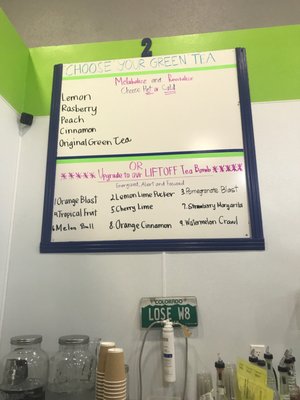 2
CHOOSE YOUR GREEN TEA
Metabolize and Revitalize
Choose Hot or Cold
Lemon
Rasberry
Peach
Cinnamon
Original Green Tea
OR
Upgrade to our LIFTOFF Tea Bomb
Energized, Alert and Focused
1 Orange Blast 2 Lemon Lime Pucker 3 Pomegranate Blast
4 Tropical Fruit 5 Cherry Lime 7. Strawberry Margarita
6 Melon Ball 8 Orange Cinnamon 9. Watermelon Crawl
COLORADO
LOSE W8